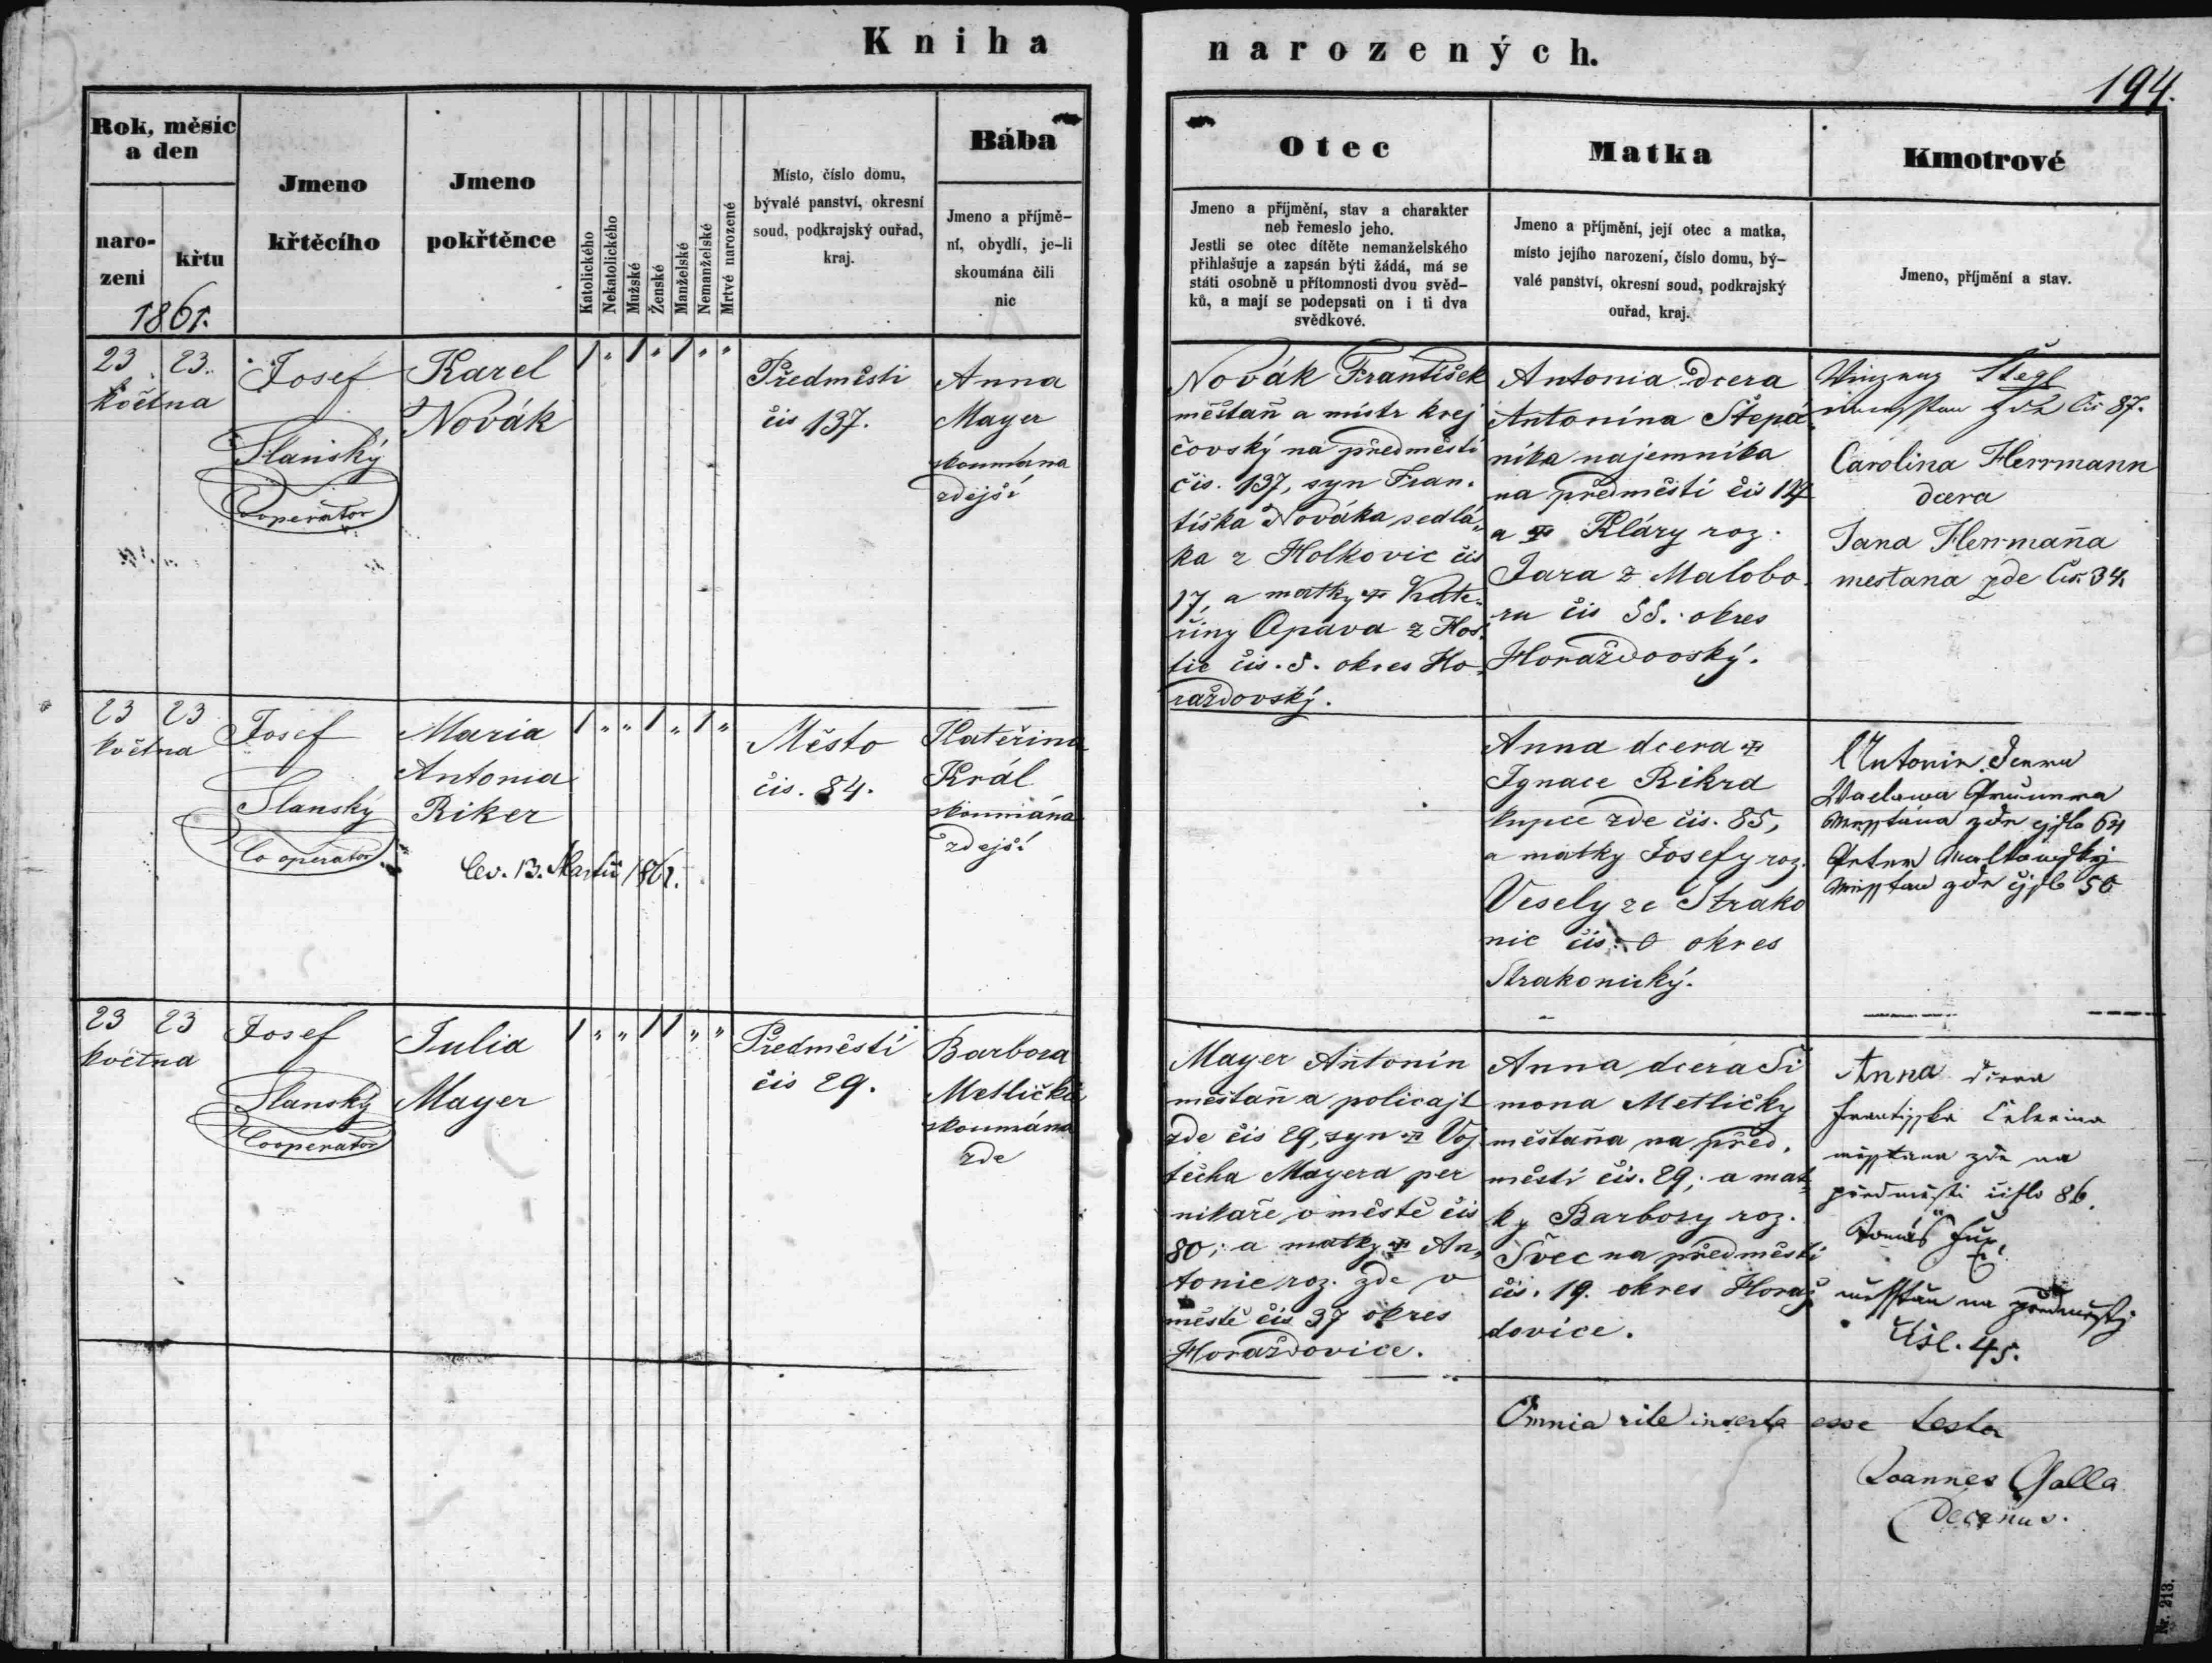 Kniha narozených.
194.
Rok, měsíc
a den
naro-
zeni
křtu
1861.
Jmeno
křtěcího
Jmeno
pokřtěnce
Katolického
Nekatolického
Mužské
Ženské
Manželské
Nemanželské
Mrtvé narozené
Místo, číslo domu,
bývalé panství, okresní
soud, podkrajský ouřad,
kraj.
Bába
Jmeno a příjmě-
ní, obydlí, je-li
skoumána čili
nic
Otec
Jmeno a příjmění, stav a charakter
neb řemeslo jeho.
Jestli se otec dítěte nemanželského
přihlašuje a zapsán býti žádá, má se
státi osobně u přítomnosti dvou svěd-
ků, a mají se podepsati on i ti dva
svědkové.
Matka
Jmeno a příjmění, její otec a matka,
místo jejího narození, číslo domu, bý-
valé panství, okresní soud, podkrajský
ouřad, kraj.
Kmotrové
Jmeno, příjmění a stav.
23 23.
května
Josef
Slanský
Cooperator
Karel
Novák
1 " 1 " 1 " "
Předměstí
čis 137.
Anna
Mayer
skoumána
zdejší
Novák František
měštaň a mistr krej
čovský na předměstí
čis. 137, syn Fran-
tiška Nováka sedlá-
ka z Holkovic čis
17, a matky Kate-
řiny Opava z Hos-
tic čis. 5. okres Ho-
ražďovský.
Antonia dcera
Antonína Štepá
níka najemníka
na předměstí čis 14
a Kláry roz.
Jara z Malobo-
ru čis 55. okres
Horažďovský.
Štegl
čis 87.
Carolina Herrmann
dcera
Jana Herrmaňa
mestana zde čis. 34.
23 23
května
Josef
Slanský
Cooperator
Maria
Antonia
Riker
Lev. 13. Martii 1861.
1 " " 1 " 1 "
Město
čis. 84.
Kateřina
Král
skoumána
zdejší
Anna dcera
Ignace Rikra
kupce zde čis. 85,
a matky Josefy roz.
Vesely ze Strako
nic čis. 0 okres
Strakonický.
Antonin
Waclawa
zde čjslo 64
zde čjslo 50
23 23
května
Josef
Slanský
Cooperator
Julia
Mayer
1 " " 1 1 " "
Předměstí
čis 29.
Barbora
Metlička
skoumána
zde
Mayer Antonín
měštaň a policajt
zde čis 29, syn Voj
těcha Mayera per
nikaře v městě čis
80; a matky An-
tonie roz. zde v
městě čis 37 okres
Horažďovice.
Anna dcera Ši
mona Metličky
měštaňa na před-
městí čis. 29; a mat-
ky Barbory roz.
Švec na předměstí
čis. 19. okres Horaž
dovice.
Anna dcera
Frantisska
měsstana zde na
předměsti čislo 86.
Tomáš
měsstan na předměstj
čísl. 45.
Omnia rite inserta esse testor
Joannes Galla
Decanus.
Nr. 213.